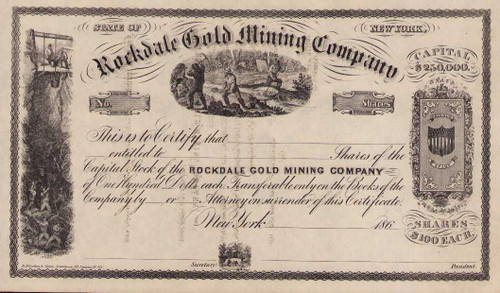 STATE OF NEW YORK.
Rockdale Gold Mining Company
CAPITAL
$250,000.
No. Shares
This is to Certify that
entitled to Shares of the
Capital Stock of the ROCKDALE GOLD MINING COMPANY
of One Hundred Dolls each Transferable only on the Books of the
Company by or Attorney on surrender of this Certificate.
New York 186
SHARES
$100 EACH.
Secretary President